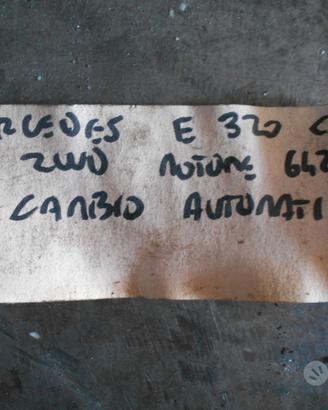 RCEDES E 320 C
2WD MOTORE 642
CAMBIO AUTOMATI